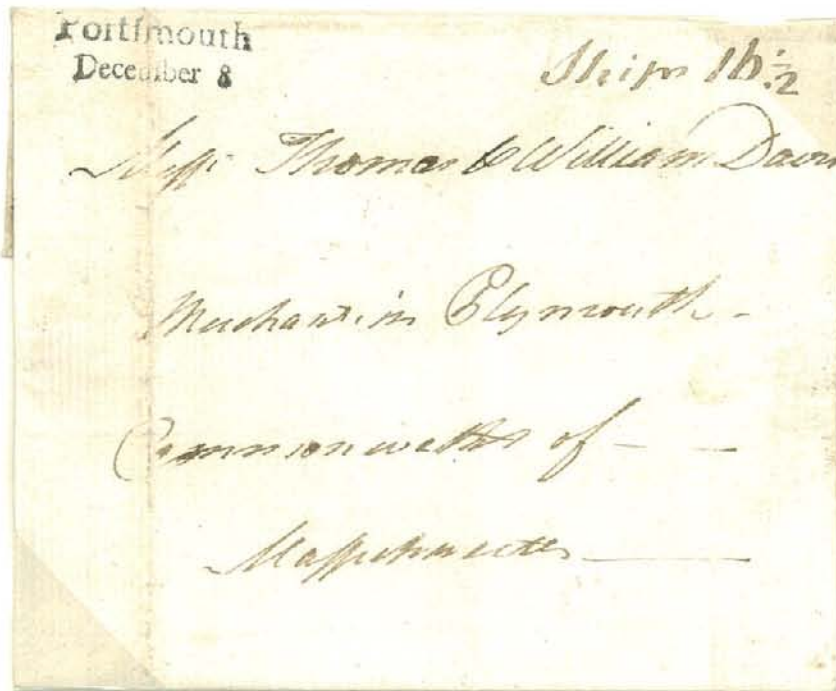 Portſmouth
December 8
Ship 16 1/2
Messrs Thomas & William Davis
Merchants in Plymouth -
Commonwealth of - -
Massachusetts